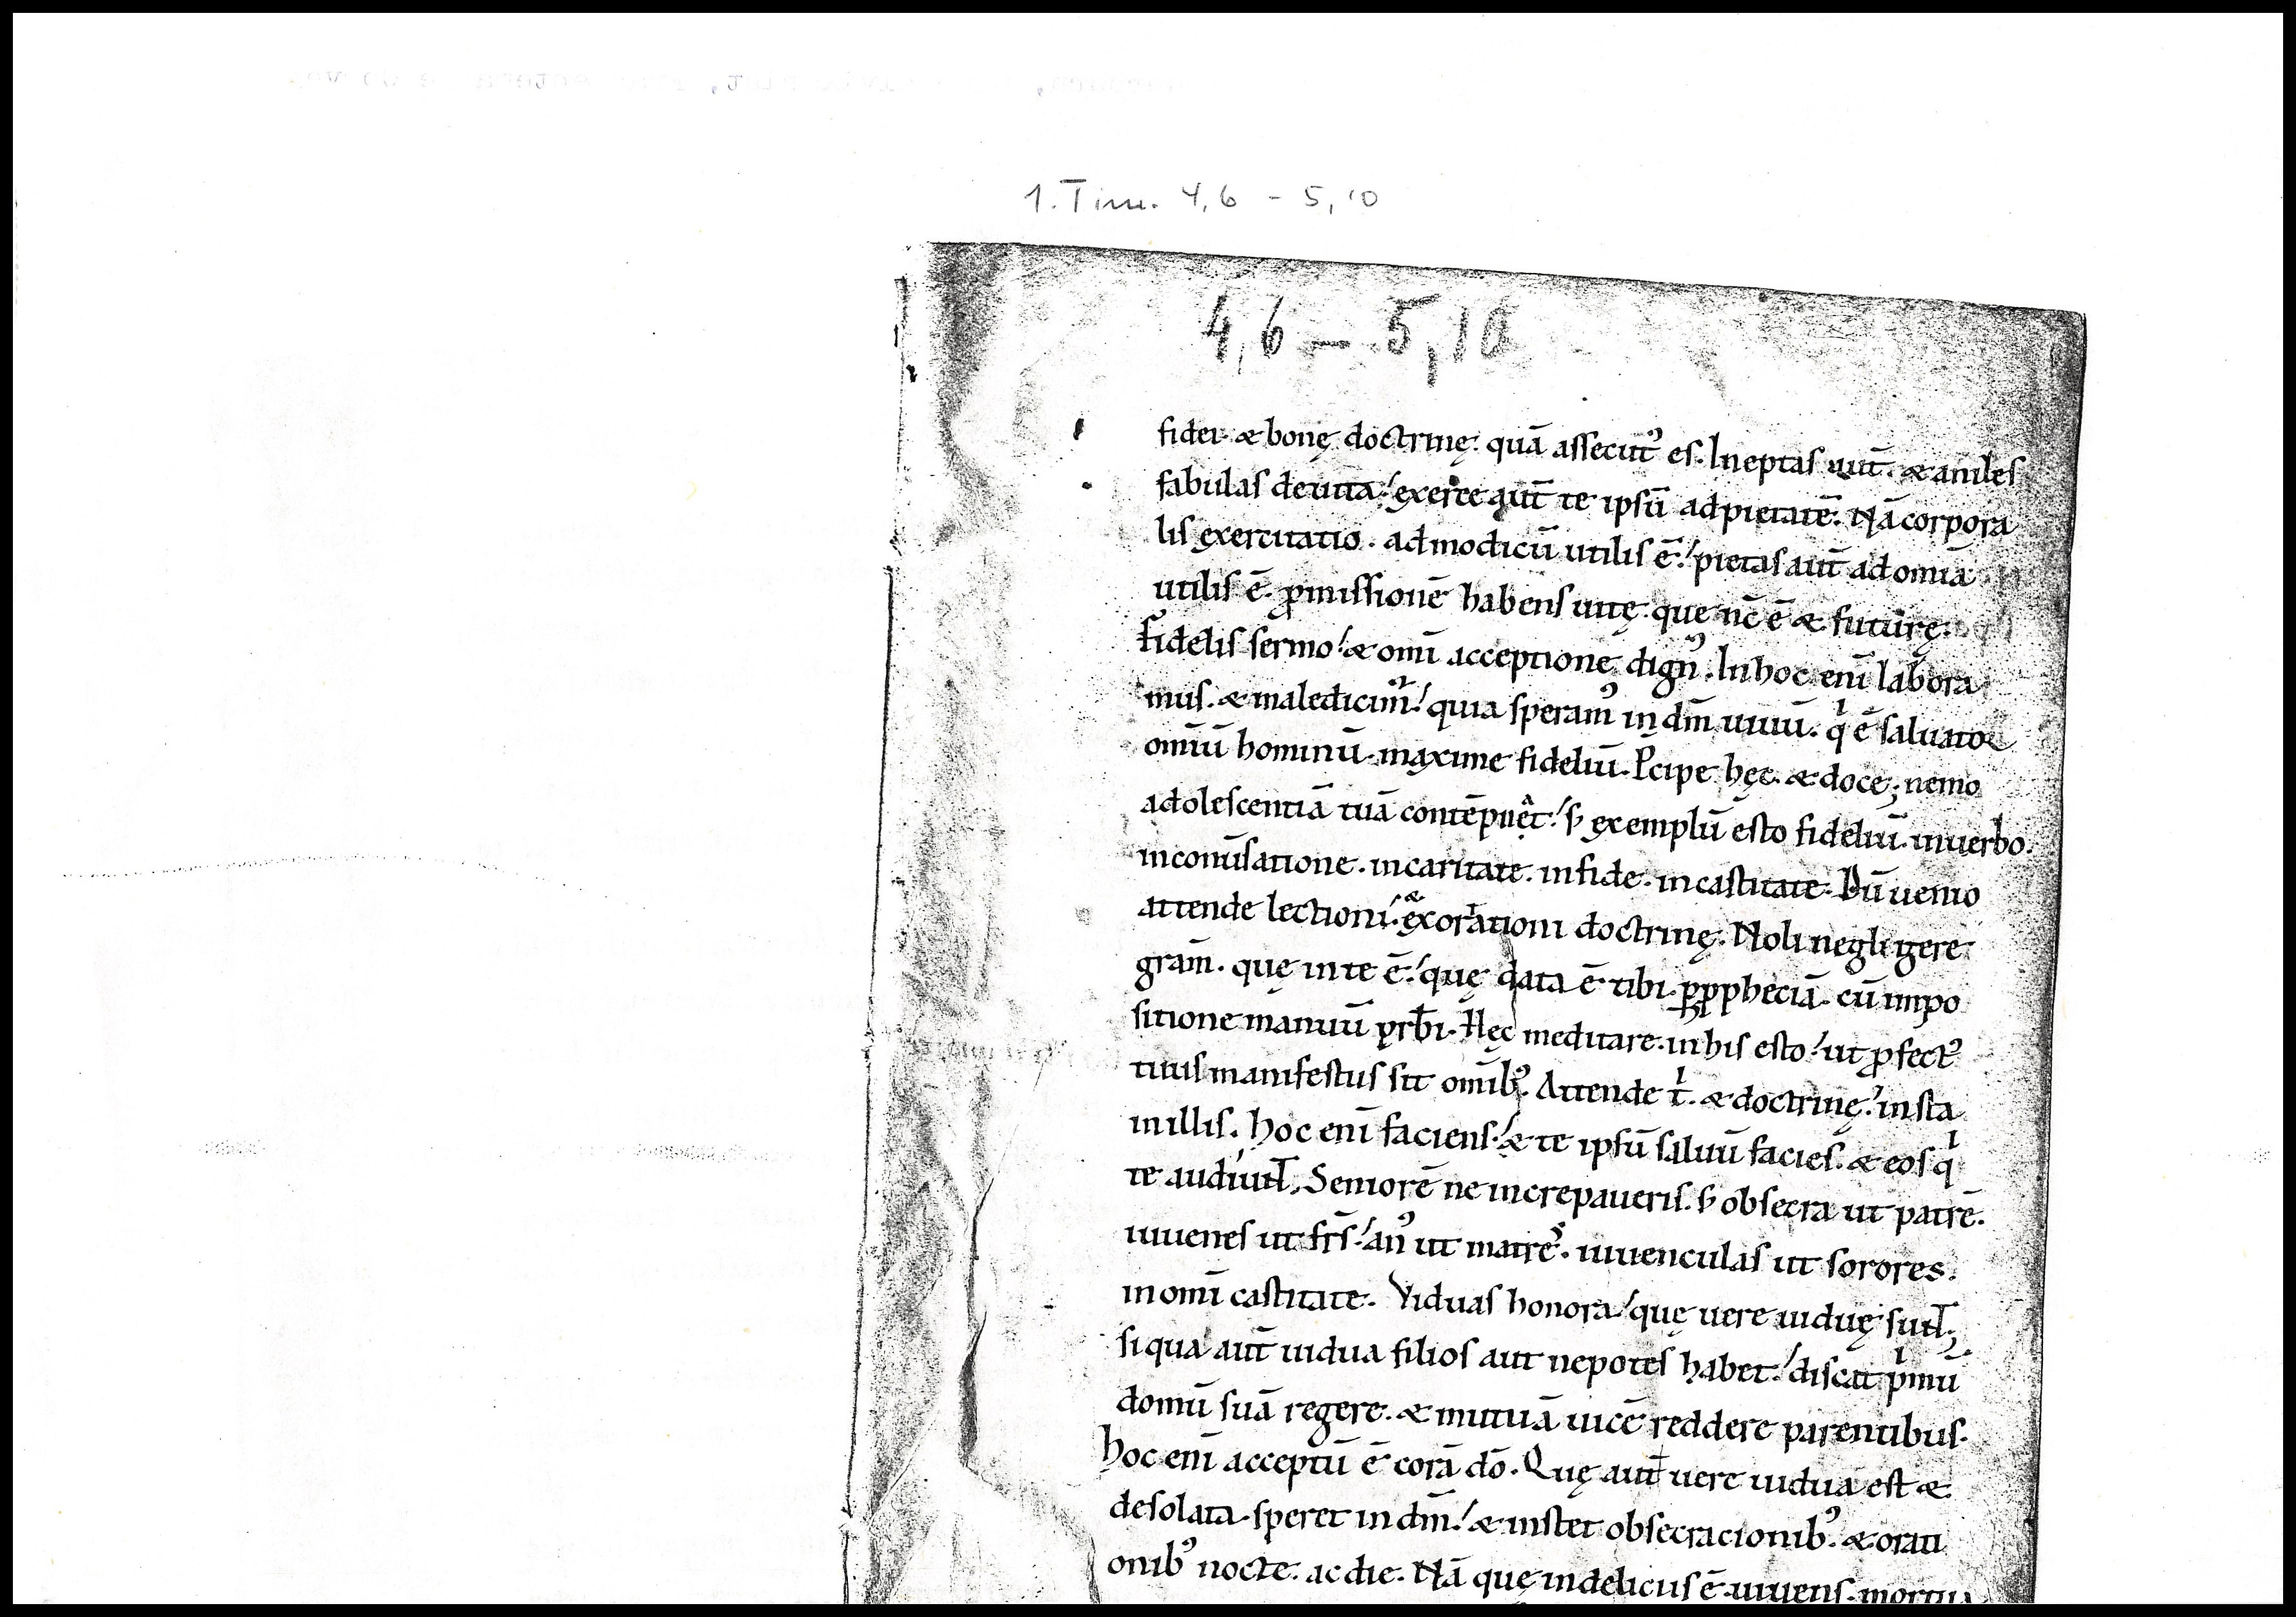 1. Tim. 4,6 - 5,10
4,6 — 5,10
fidei. & bonę doctrinę. quā assecutꝰ es. Ineptas aut̄. & aniles
fabulas deuita. exerce aut̄ te ipsū ad pietatē. Nā corpora
lis exercitatio. ad modicū utilis ē. pietas aut̄ ad om̄ia
utilis ē. ꝓmissionē habens uitę. quę nc̄ ē & futurę.
Fidelis sermo. & om̄i acceptione dignꝰ. In hoc eni̅ labora
mus. & maledicim̄r. quia speramꝰ in dm̄ uiuū. qͥ ē saluator
om̄iū hominū. maxime fideliū. P̄cipe hęc. & doce; nemo
adolescentiā tuā contēpnet. sꝫ exemplū esto fideliū. in uerbo.
in conūsatione. in caritate. in fide. in castitate. Dū uenio
attende lectioni. exortationi doctrinę. Noli negligere
grām. quę in te ē. quę data ē tibi. ꝑ ꝓpheciā. cū impo
sitione manuū prb̄i. Hęc meditare. in his esto. ut ꝓfectꝰ
tuus manifestus sit om̄ibꝰ. Attende tͥ. & doctrinę. insta
in illis. hoc eni̅ faciens. & te ipsū saluū facies. & eos qͥ
te audiuꝴt̄. Seniorē ne increpaueris. sꝫ obsecra ut patrē.
iuuenes ut fr̄s. anꝰ ut matres. iuuenculas ut sorores.
in om̄i castitate. Viduas honora. quę uere uiduę sunt̄;
si qua aut̄ uidua filios aut nepotes habet. discat pͥmū
domū suā regere. & mutuā uicē reddere parentibus.
hoc eni̅ acceptū ē corā dō. Quę aut̄ uere uidua est &
desolata. speret in dm̄. & instet obsecracionibꝰ. & orati
onibꝰ nocte. ac die. Nā quę in deliciis ē. uiuens. mortua